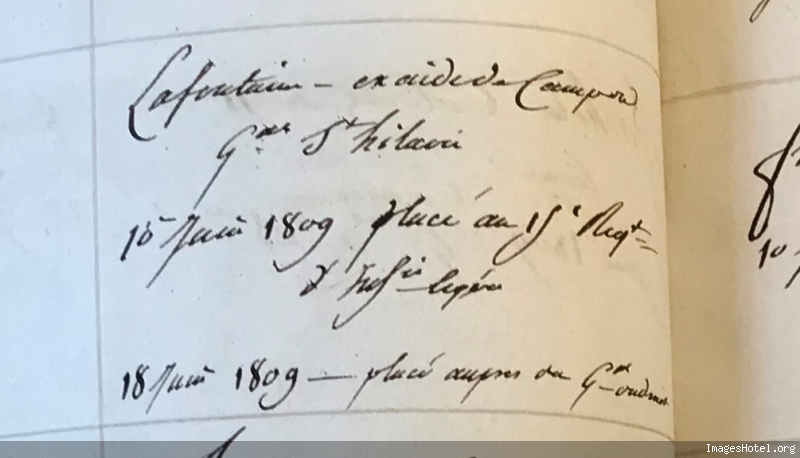 Lafontaine – ex aide de Camp du
Gal St hilaire
15 Juin 1809 placé au 15e Regt
d'Infie légère
18 Juin 1809 — placé auprès du Gal oudinot
10
ImagesHotel.org